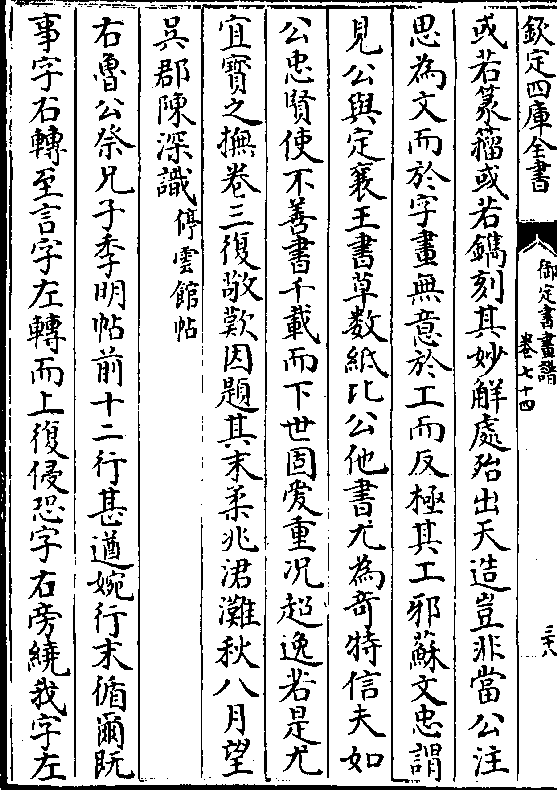 欽定四庫全書
御定書畫譜
卷七十四
三十八
或若篆籀或若鐫刻其妙解處殆出天造豈非當公注
思為文而於字畫無意於工而反極其工邪蘇文忠謂
見公與定襄王書草数紙比公他書尤為竒特信夫如
公忠賢使不善書千載而下世固爱重况超逸若是尤
宜寳之撫卷三復敬歎因題其末柔兆涒灘秋八月望
吳郡陳深識停雲館帖
右魯公祭兄子季明帖前十二行甚遒婉行末循爾既
事字右轉至言字左轉而上復侵恐字右旁繞我字左